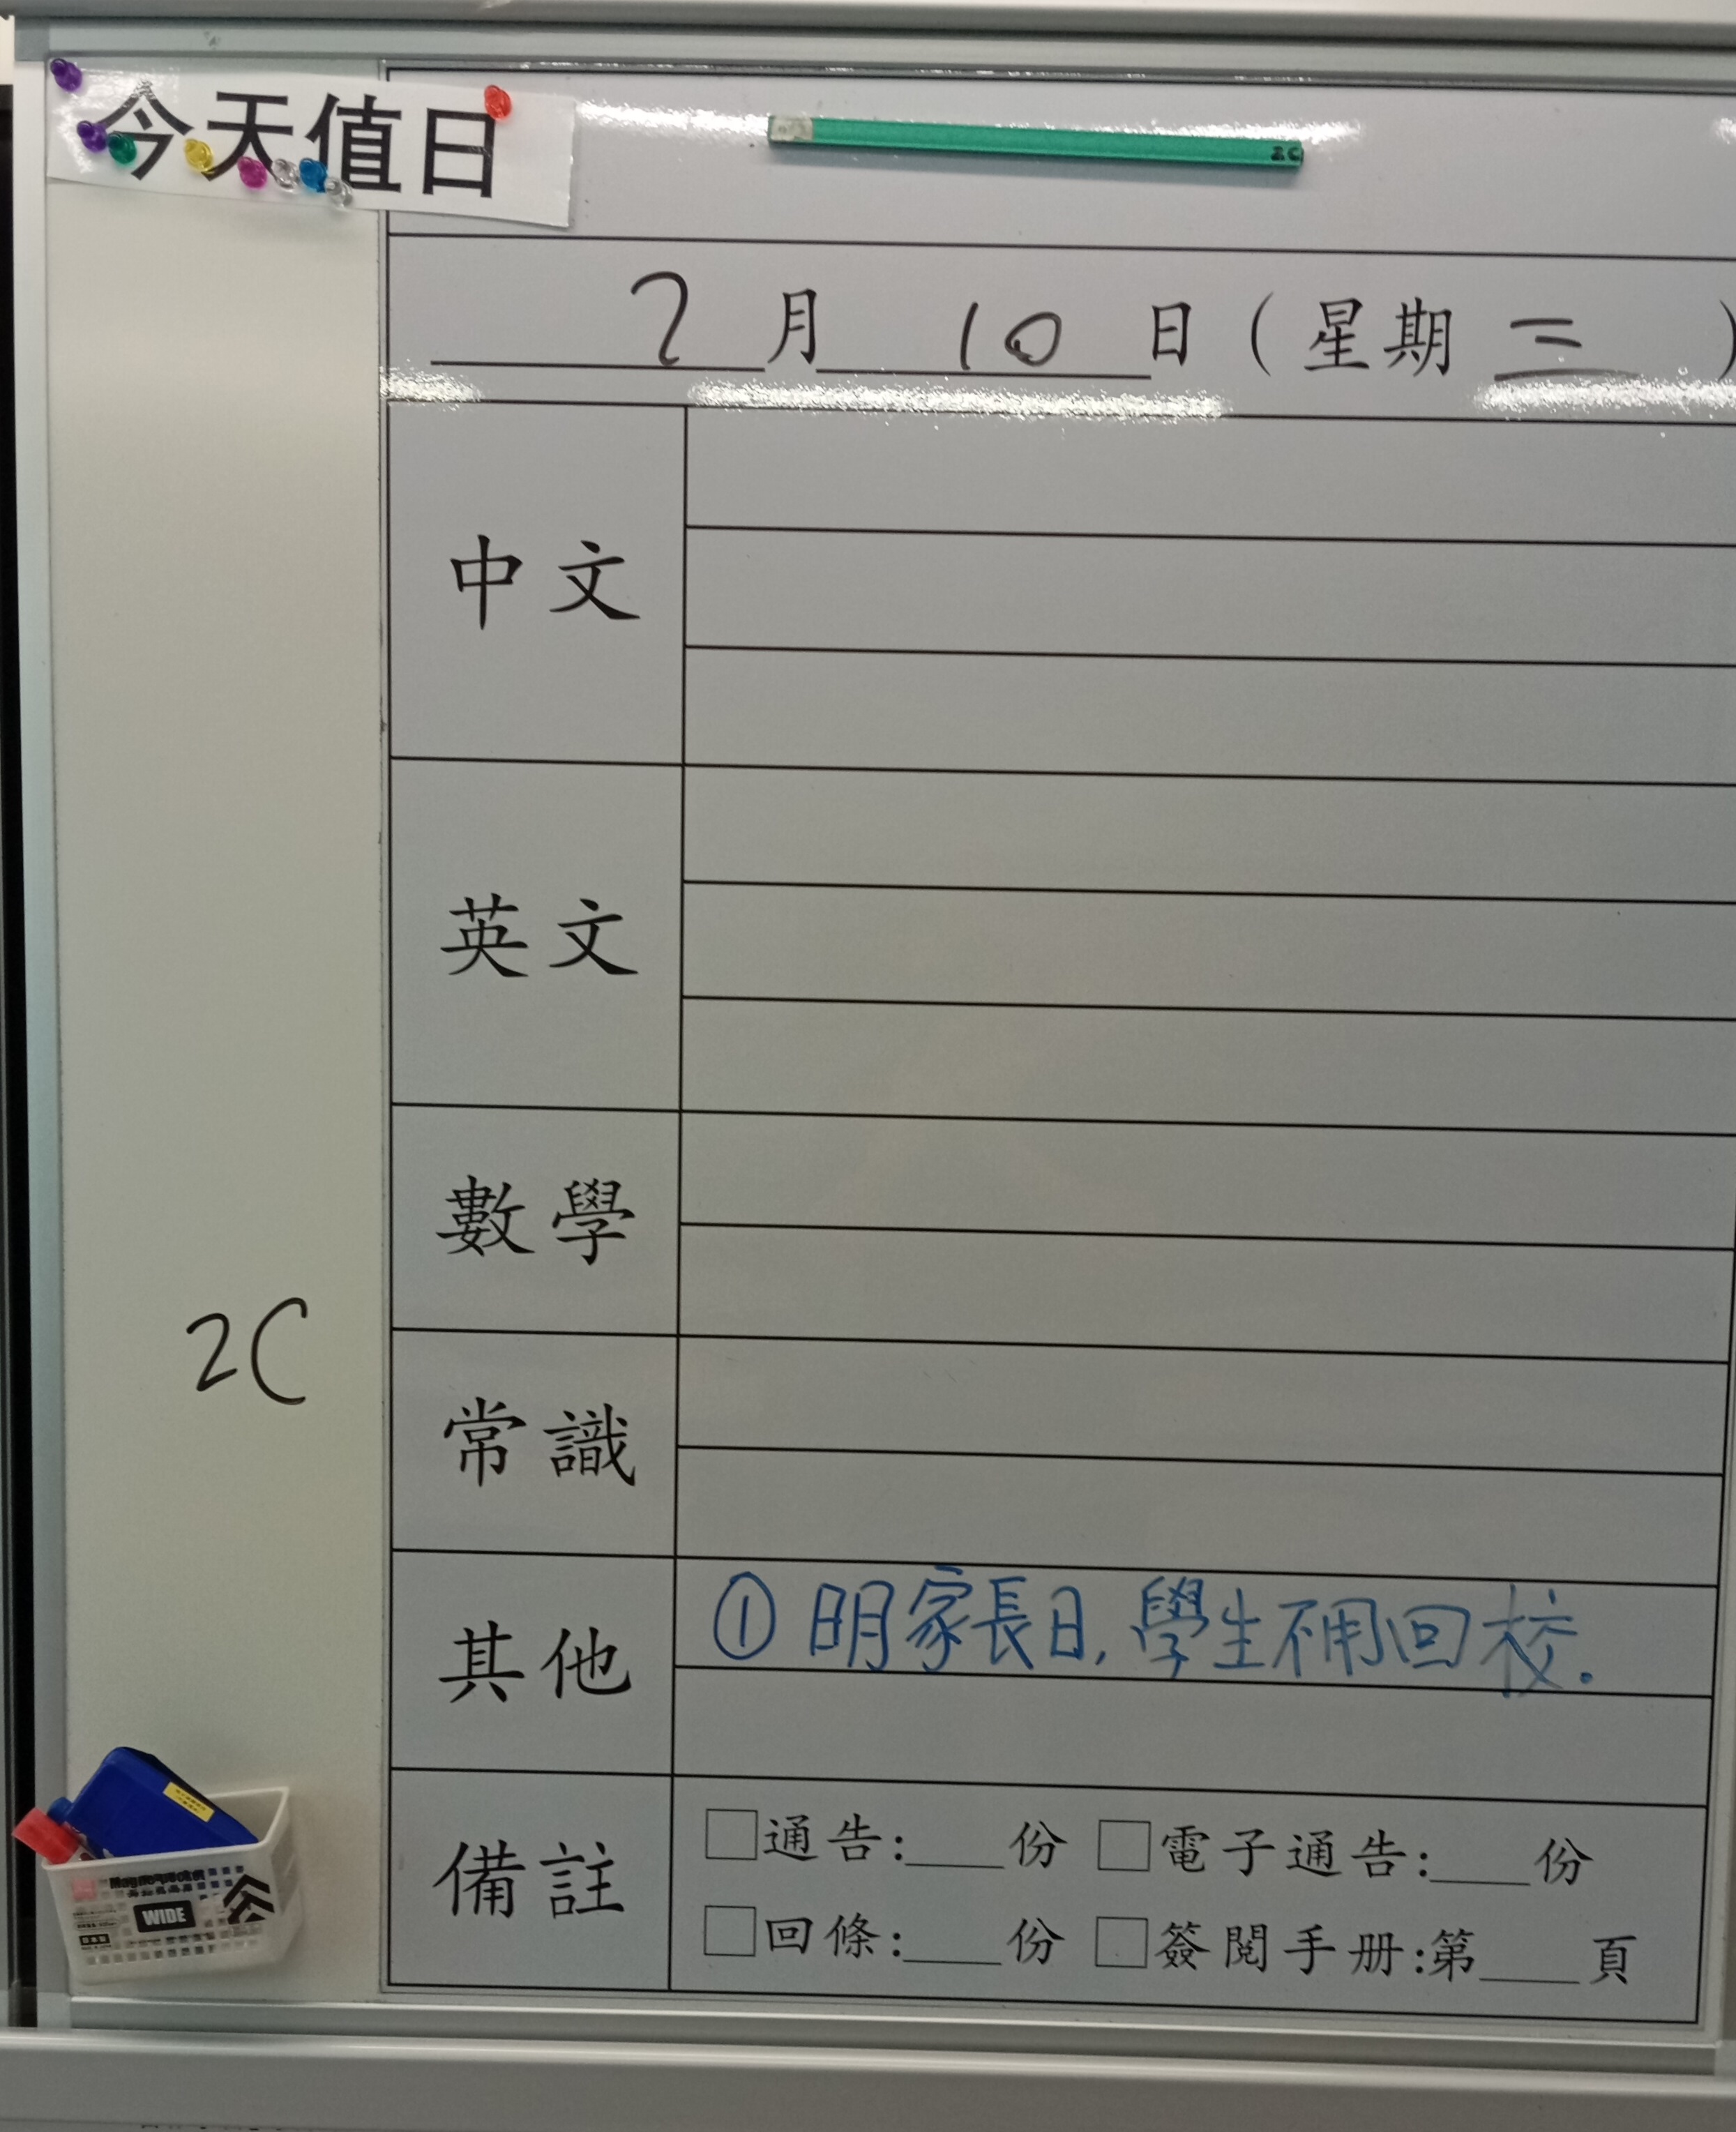 今天值日
2C
2月10日(星期三)
中文
英文
數學
常識
2C
其他
①明家長日,學生不用回校.
備註
□通告:___份 □電子通告:___份
□回條:___份 □簽閱手册:第___頁
WIDE